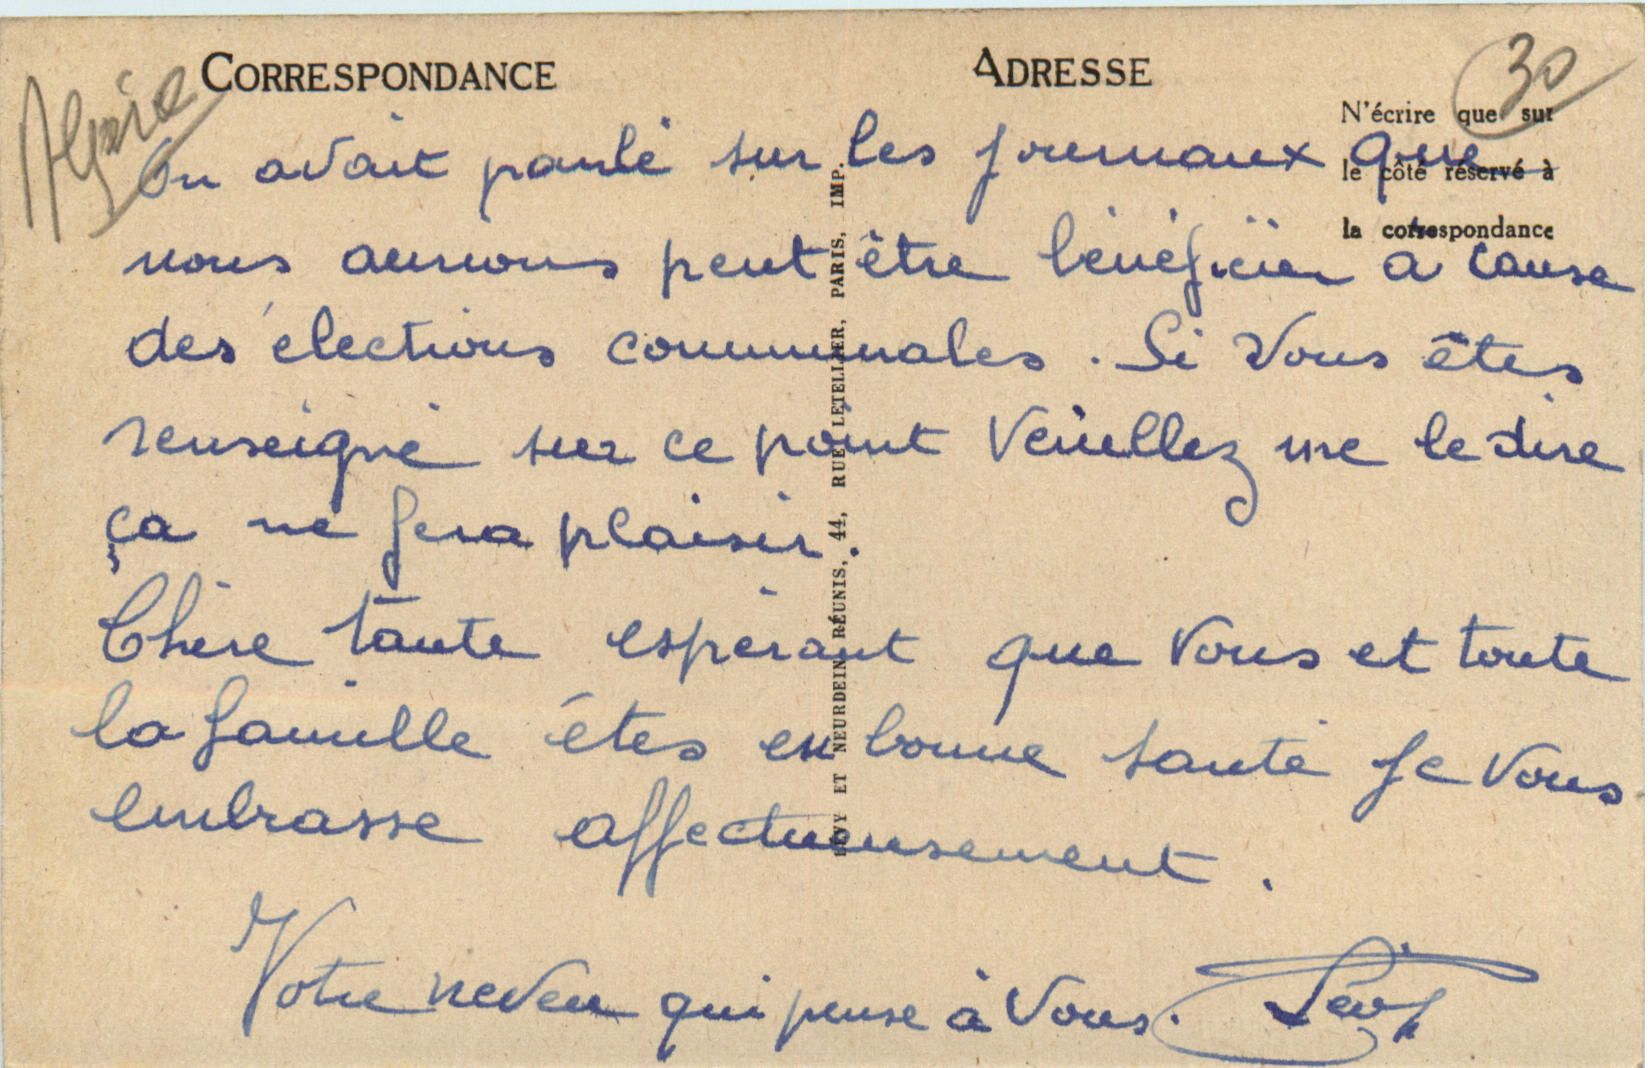 Algérie
CORRESPONDANCE
ADRESSE
30
N'écrire que sur
le côté réservé à
la correspondance
On avait parlé sur les journaux que
nous aurions peut être bénéficier a cause
des élections communales. Si vous êtes
renseigné sur ce point Veuillez me le dire
ça me fera plaisir.
Chère tante espérant que vous et toute
la famille êtes en bonne santé je vous
embrasse affectueusement.
Votre neveu qui pense à vous.
LÉVY ET NEURDEIN RÉUNIS, 44, RUE LETELLIER, PARIS, IMP.